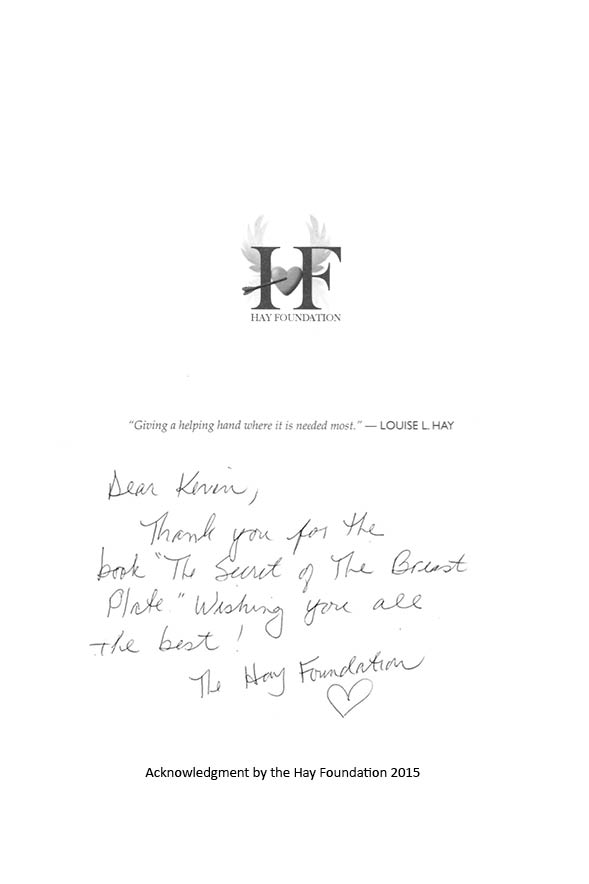 HF
HAY FOUNDATION
"Giving a helping hand where it is needed most." — LOUISE L. HAY
Dear Kevin,
Thank you for the
book "The Secret of The Breast
Plate." Wishing you all
the best!
The Hay Foundation
Acknowledgment by the Hay Foundation 2015